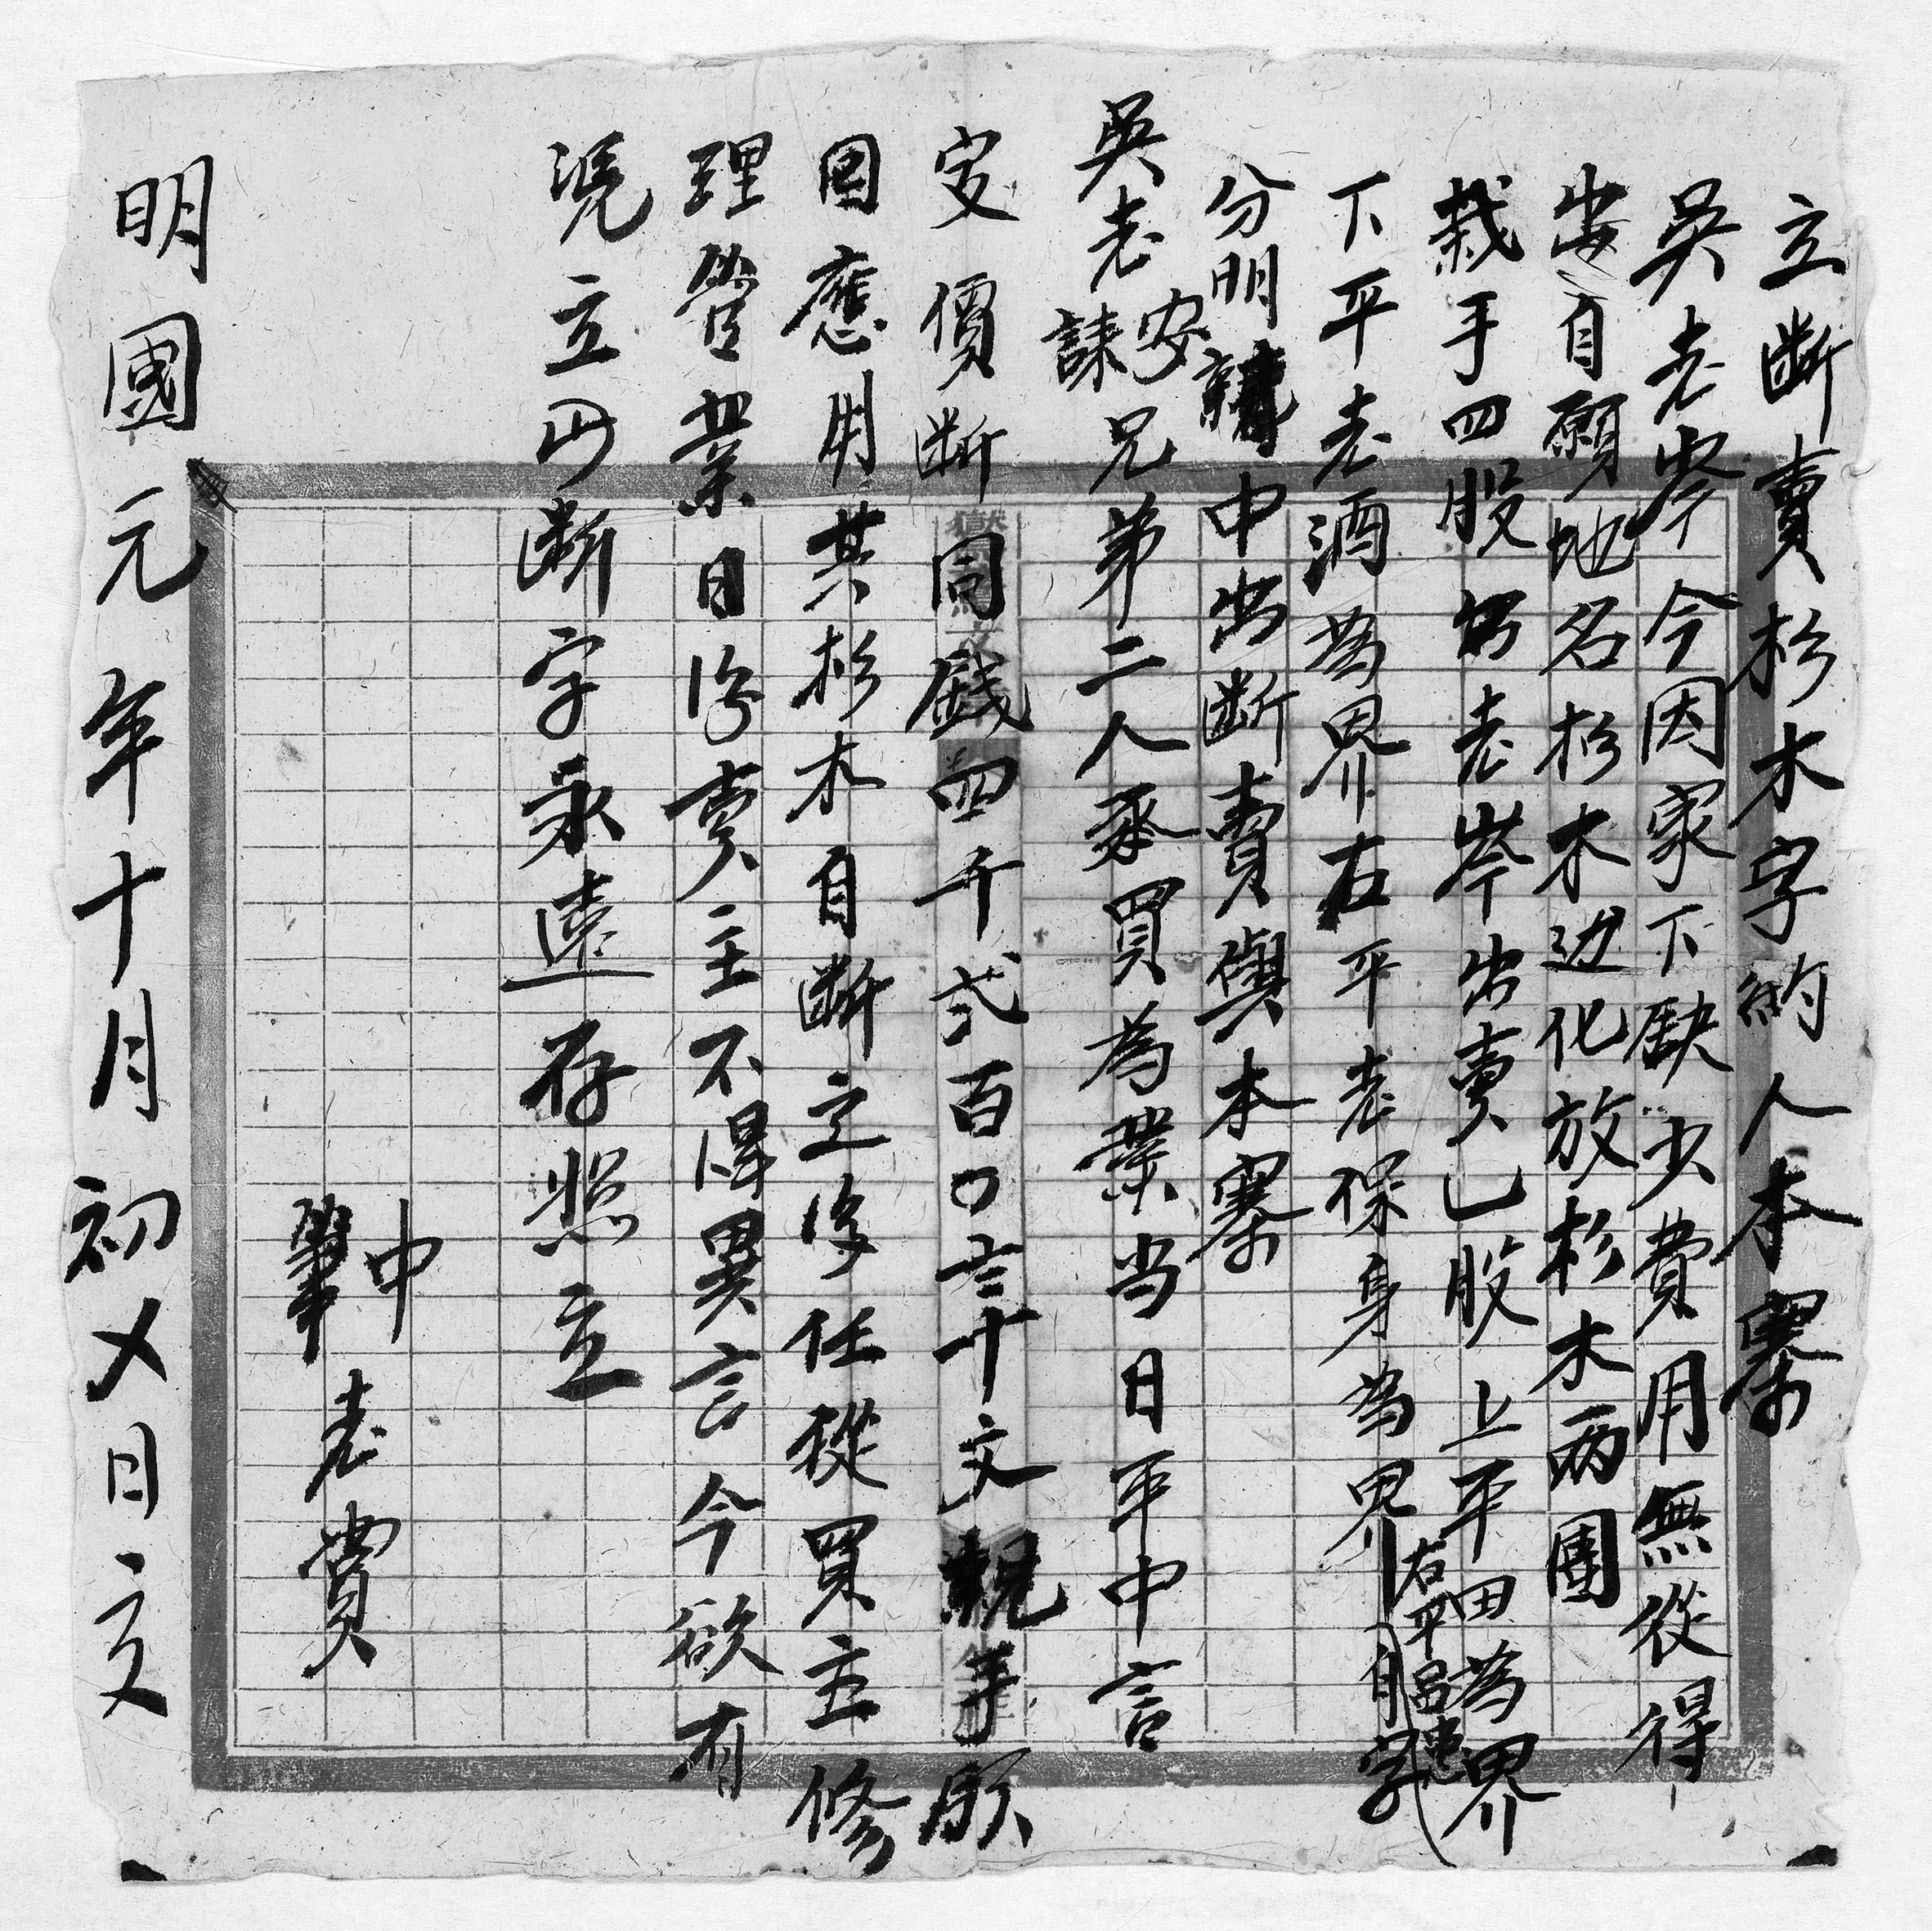 立断賣杉木字約人本寨
吳老岺今因家下缺少費用無從得
出自願地名杉木边化放杉木两團
栽手四股老岺出賣乚股上平田為界
下平老酒為界左平老保身為界右平
分明請中出断賣與本寨
吳老安誄兄弟二人承買為業当日平中言
定價断同錢四千弍百〇言十文親手
因應用其杉木自断之後任從買主修
理管業日後賣主不得異言今欲有
凴立断字永遠存照立
中
筆老賞
明國元年十月初乂日立